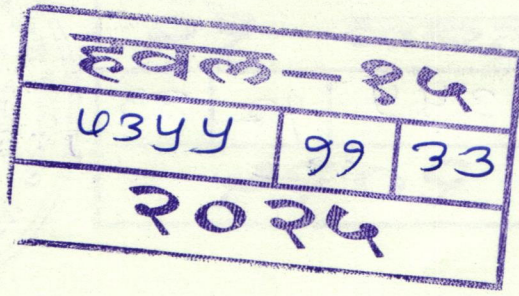 हवल-१५
७३५५ ११ ३३
२०२५